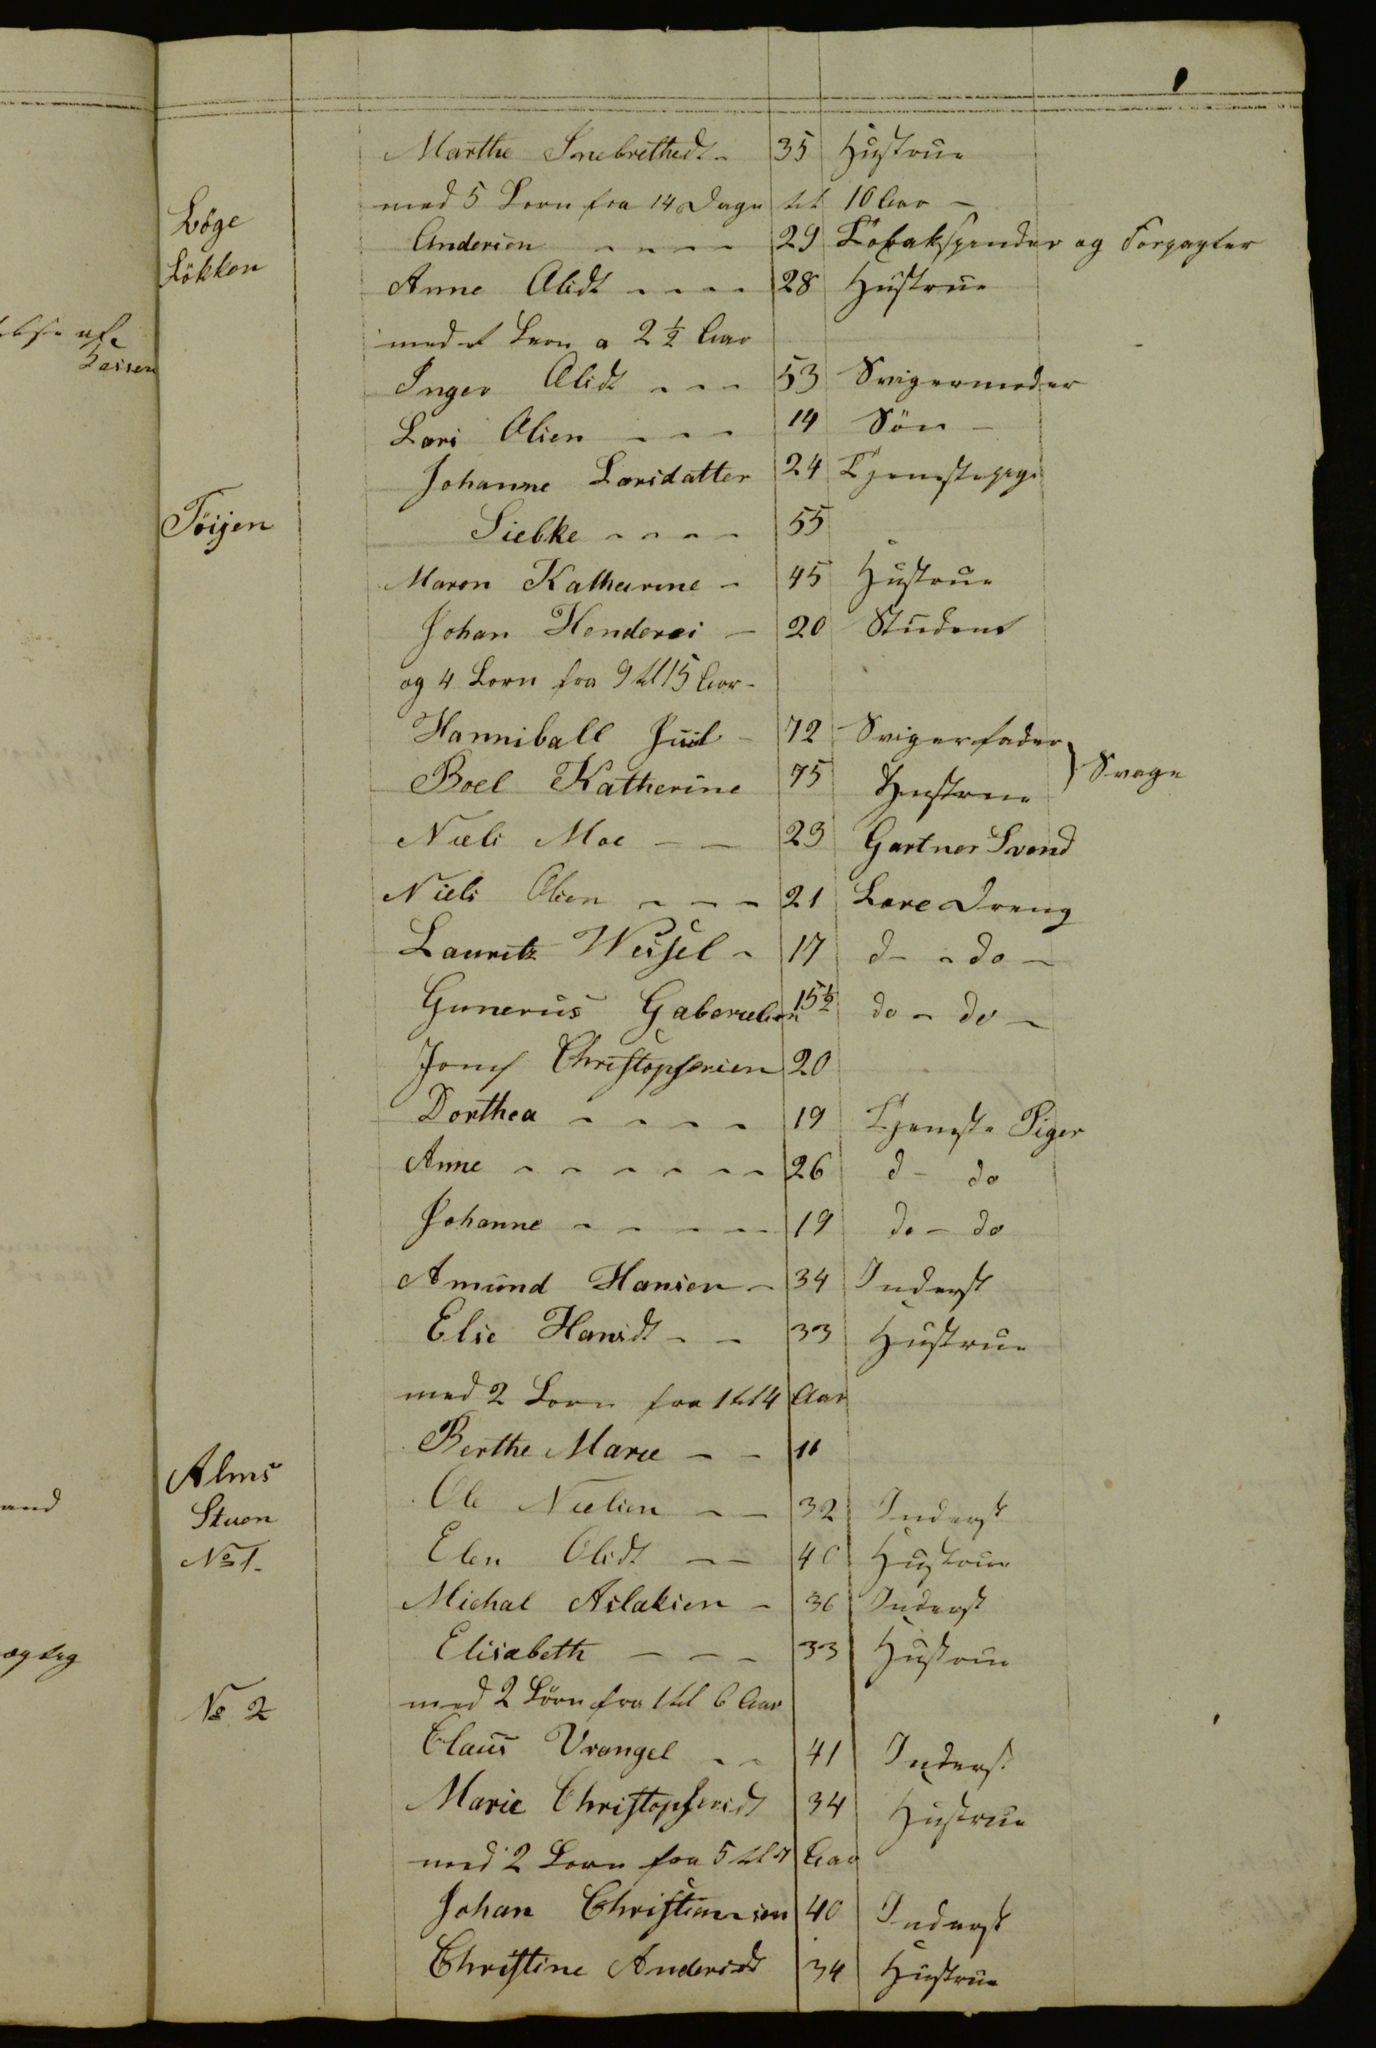 Marthe Inebrethsdt - 35 Hustrue
med 5 Børn fra 14 Dage til 10 Aar -
Böge
Andersen - - - - 29 Tobakspinder og Forpagter
Løkken
Anne Olsdt - - - - 28 Hustrue
med et Barn a 2½ Aar
Inger Olsdt - - - 53 Svigermoder
Lars Olsen - - - 14 Sön -
Johanne Larsdatter 24 Tjenestepige
Töijen
Siebke - - - - 55
Maren Katharine - 45 Hustrue
Johan - 20 Student
og 4 Børn fra 9 til 15 Aar -
Hanniball Juul - 72 Svigerfader
Boel Katherine 75 Hustrue } Svage
Niels Moe - - 23 Gartner Svend
Niels Olsen - - - 21 Lære Dreng
Lauritz Wessel - 17 d - - do -
Gunerus Gabrielsen 15½ do - do -
Christophersen 20
Dorthea - - - - 19 Tjeneste Piger
Anne - - - - - - 26 d - do
Johanne - - - - - 19 do - do
Amund Hansen - 34 Inderst
Else Hansdt - - 33 Hustrue
med 2 Børn fra 1 til 4 Aar
Berthe Marie - - 11
Alms
Ole Nielsen - - 32 Inderst
Stuen
No 1.
Elen Olsdt - - 40 Hustrue
Michal Aslaksen - 36 Inderst
Elisabeth - - - 33 Hustrue
med 2 Börn fra 1 til 6 Aar
No 2
Claus Vrangel - - 41 Inderst
Marie Christophersdt 34 Hustrue
med 2 Børn fra 5 til Aar
Johan Christiansen 40 Inderst
Christine Andersdt 34 Hustrue